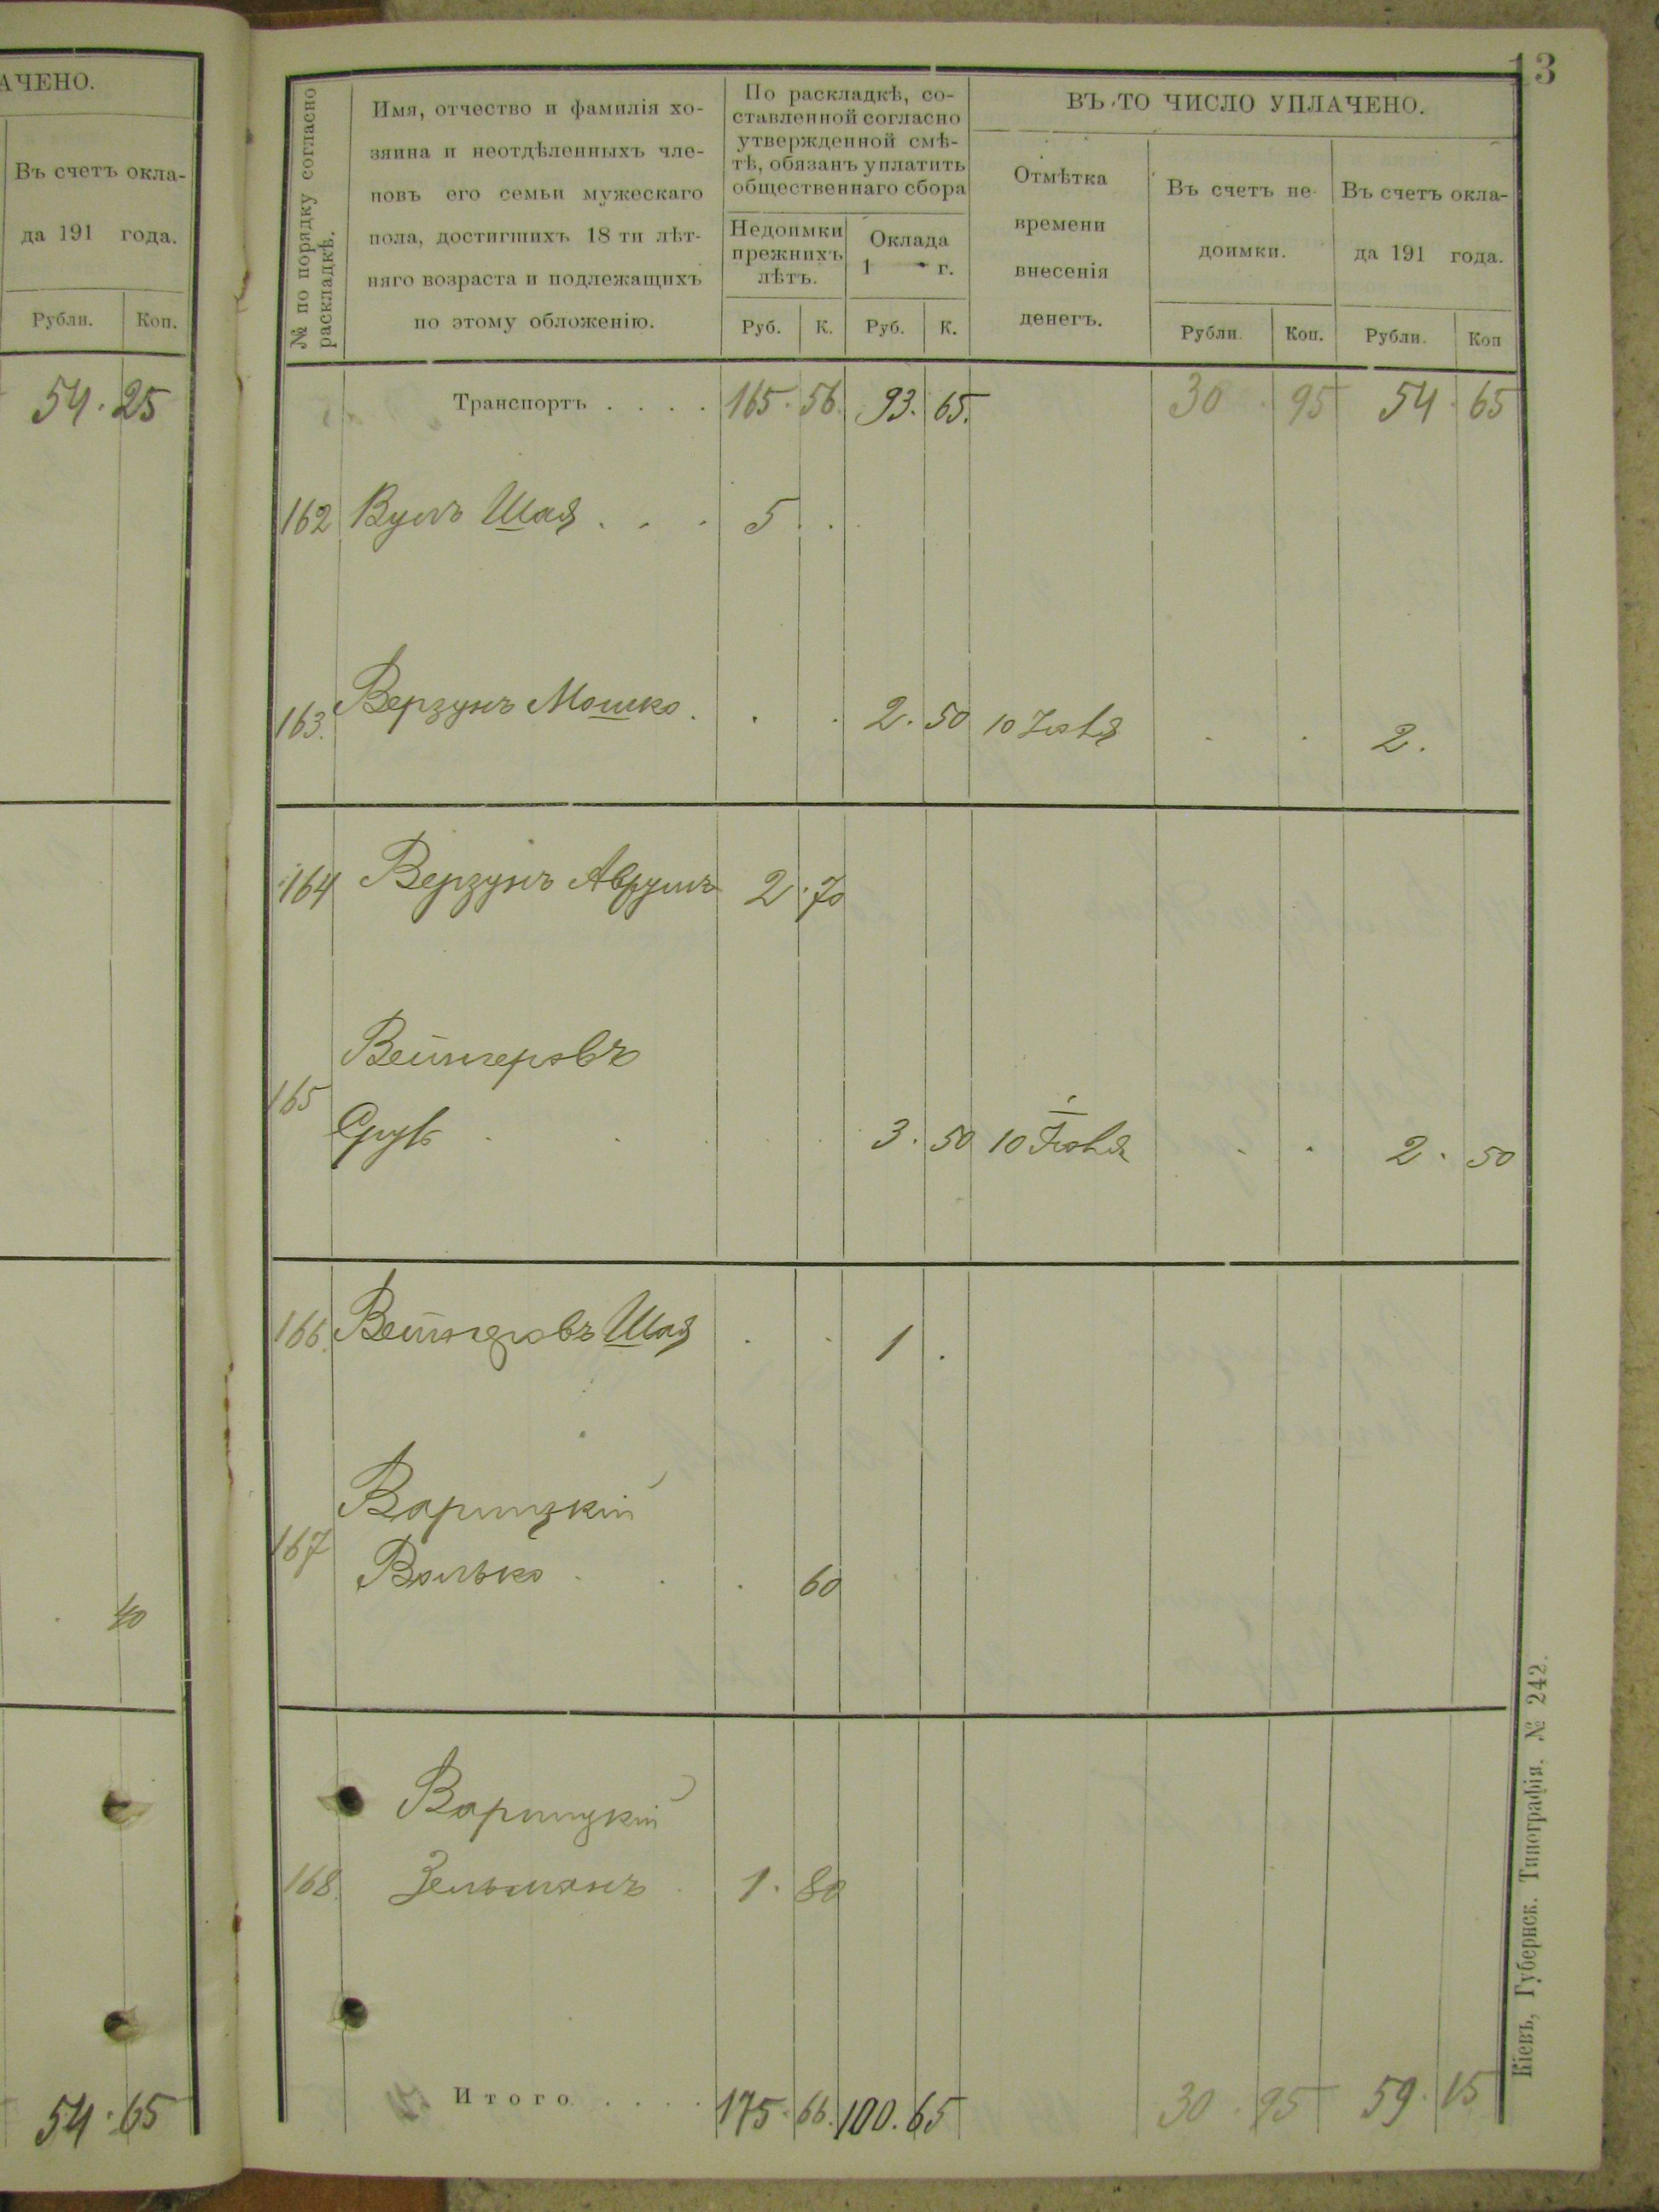 АЧЕНО.
Въ счетъ окла-
да 191 года.
Рубли. Коп.
54. 25
40
54. 65
13
№ по порядку согласно
раскладкѣ.
Имя, отчество и фамилія хо-
зяина и неотдѣленныхъ чле-
новъ его семьи мужескаго
пола, достигшихъ 18 ти лѣт-
няго возраста и подлежащихъ
по этому обложенію.
По раскладкѣ, со-
ставленной согласно
утвержденной смѣ-
тѣ, обязанъ уплатить
общественнаго сбора
Недоимки
прежнихъ
лѣтъ.
Руб. К.
Оклада
1 г.
Руб. К.
ВЪ ТО ЧИСЛО УПЛАЧЕНО.
Отмѣтка
времени
внесенія
денегъ.
Въ счетъ не-
доимки.
Рубли. Коп.
Въ счетъ окла-
да 191 года.
Рубли. Коп
Транспортъ . . . . 165. 56. 93. 65. 30. 95 54. 65
162 Вулъ Шая . . . 5 . .
163. Верзунъ Мошко . . . 2. 50 10 Іюня . . 2.
164 Верзунъ Аврумъ 2. 70
Вейнеровъ
165 Сруль . . . . . 3. 50 10 Іюня . . 2. 50
166. Вейнеровъ Шая . . 1 .
Варицкій
167 Волько . . . 60
Варицкій
168. Зельманъ . 1. 80
Итого . . . . 175. 66. 100. 65 30. 95 59. 15
Кіевъ, Губернск. Типографія. № 242.